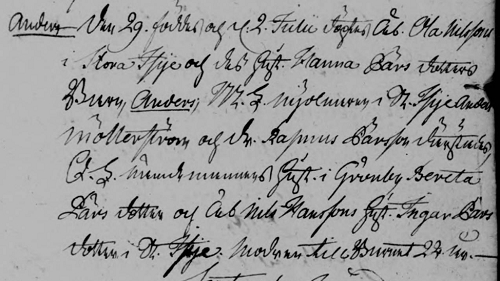 Anders Den 29. föddes och d. 2. Julii döptes Åb. Ola Nilssons
i Stora Isie och des Hust. Hanna Lars dotters
Barn, Anders, W. L. mjölnaren i St. Isie Anders
Möllerström och dr. Rasmus Larsson därstädes
Hust. i Grönby Bereta
Lars dotter och Åb Nils Hanssons Hust. Ingar Lars
dotter i St. Isie. Modren till Barnet 22